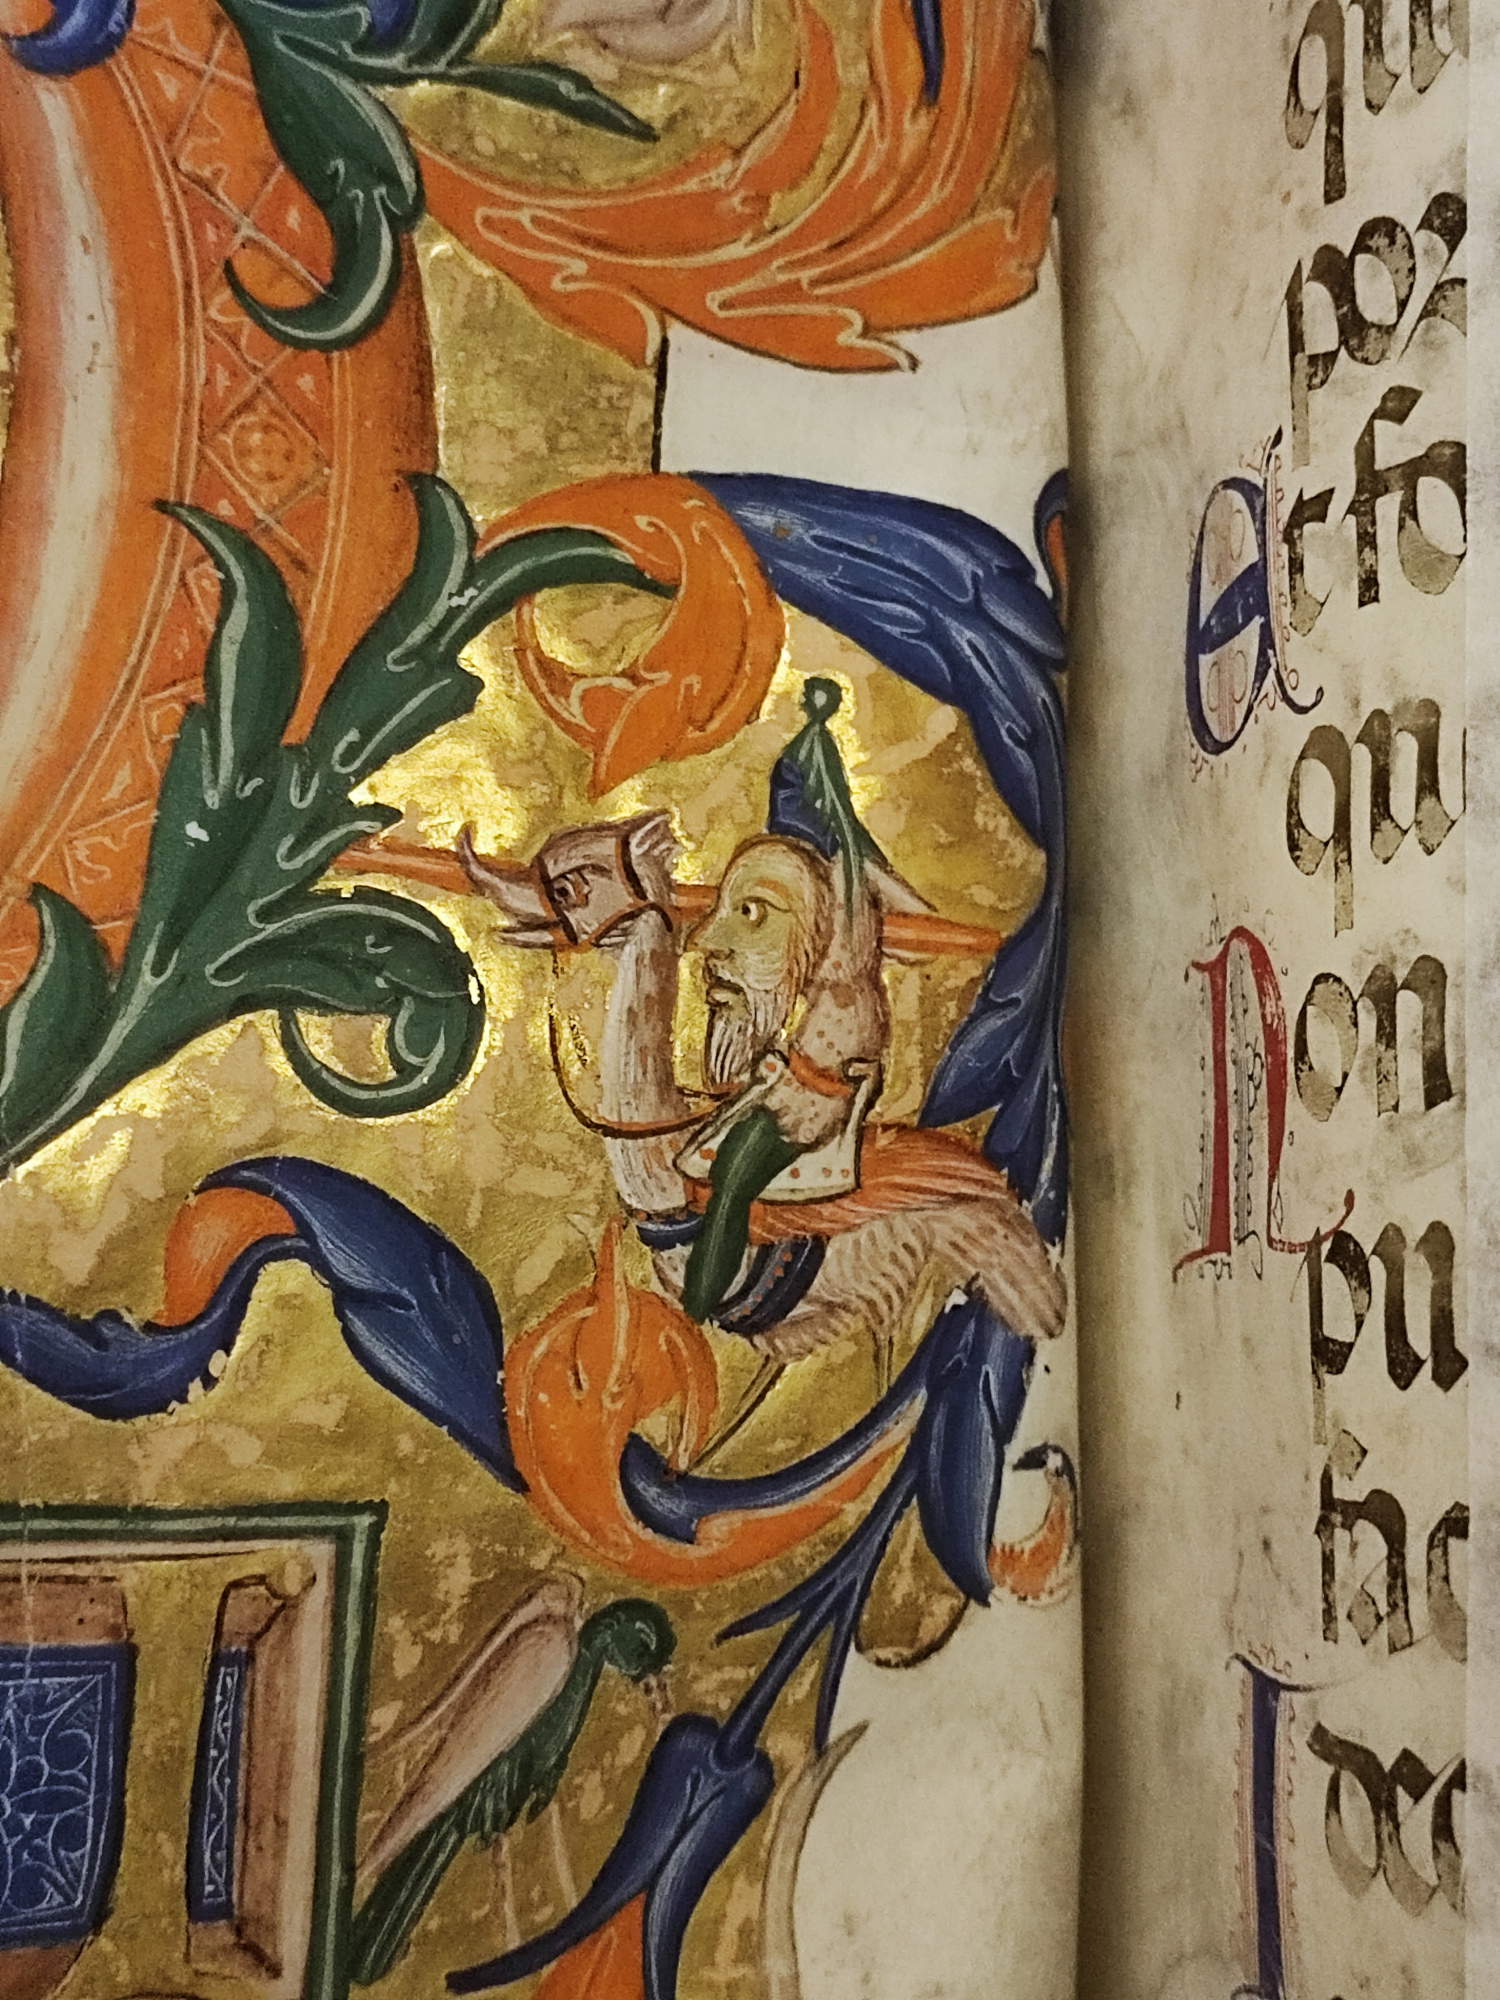 qu
poꝛ
Et fo
qu
Non
pu
fac
Ideo